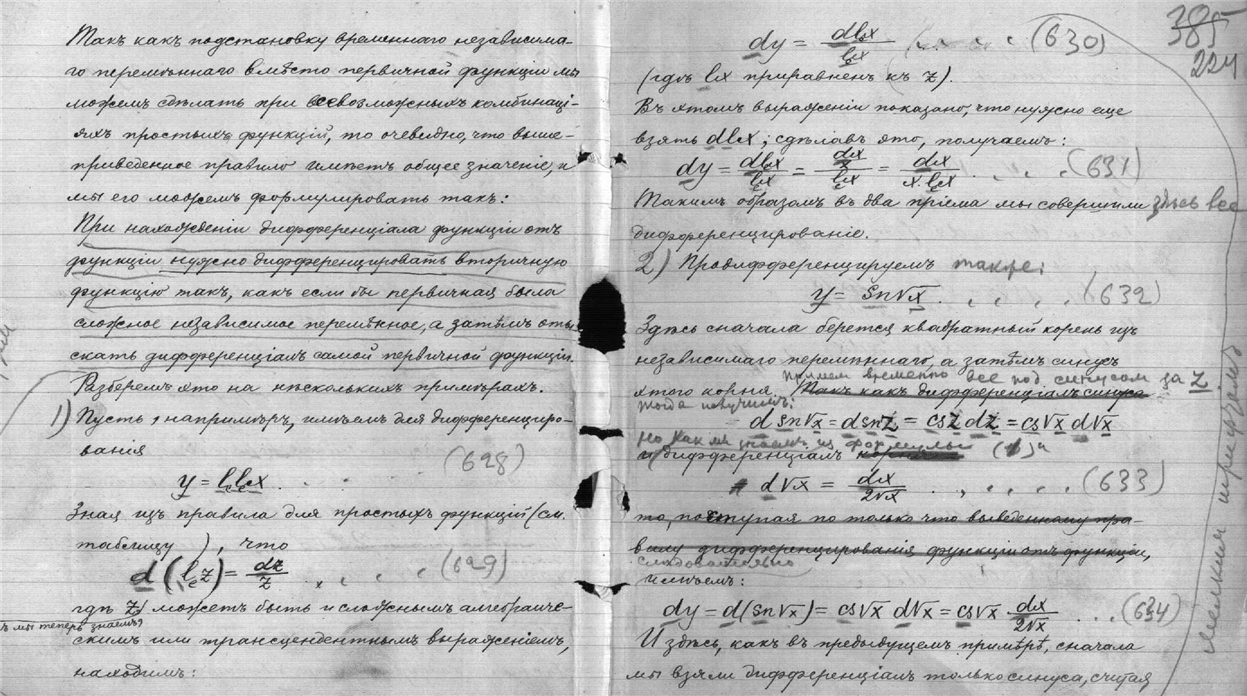 Такъ какъ подстановку временнаго независима-
го перемѣннаго вмѣсто первичной функціи мы
можемъ сдѣлать при всевозможныхъ комбинаці-
яхъ простыхъ функцій, то очевидно, что выше-
приведенное правило имѣетъ общее значеніе, и
мы его можемъ формулировать такъ:
При нахожденіи дифференціала функціи отъ
функціи нужно дифференцировать вторичную
функцію такъ, какъ если бы первичная была
сложное независимое перемѣнное, а затѣмъ оты-
скать дифференціалъ самой первичной функціи.
Разберемъ это на нѣсколькихъ примѣрахъ.
1) Пусть, напримѣръ, имѣемъ для дифференциро-
ванія
(628)
y = lₑlₑx . . .
Зная изъ правила для простыхъ функцій (см.
таблицу ), что
d (lₑz) = dz/z . . . . (629)
гдѣ z можетъ быть и сложнымъ алгебраиче-
мы теперь знаемъ
скимъ или трансцендентнымъ выраженіемъ,
находимъ:
385
224
dy = dlₑx/lₑx . . . . (630)
(гдѣ lₑx приравненъ къ z).
Въ этомъ выраженіи показано, что нужно еще
взять dlₑx; сдѣлавъ это, получаемъ:
dy = dlₑx/lₑx = (dx/x)/lₑx = dx/(x.lₑx) . . . . (631)
Такимъ образомъ въ два пріема мы совершили здѣсь все
дифференцированіе.
2) Продифференцируемъ также:
y = sn√x . . . . . (632)
Здѣсь сначала берется квадратный корень изъ
независимаго перемѣннаго, а затѣмъ синусъ
примем временно все под синусом за z
этого корня. Такъ какъ дифференціалъ синуса
тогда получимъ:
d sn√x = d snz = csz dz = cs√x d√x
но как мы знаем из формулы ( )
и дифференціалъ корня
d√x = dx/2√x . . , . . . (633)
то, поступая по только что выведенному пра-
вилу дифференцированія функціи отъ функціи,
следовательно
имѣемъ:
dy = d(sn√x) = cs√x d√x = cs√x dx/2√x . . . . (634)
И здѣсь, какъ въ предыдущемъ примѣрѣ, сначала
мы взяли дифференціалъ только синуса, считая
мелкимъ шрифтомъ